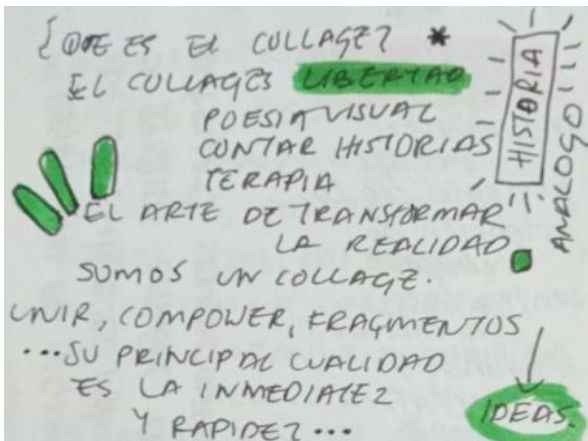 ¿QUE ES EL COLLAGE? *
EL COLLAGES LIBERTAD
POESIA VISUAL
CONTAR HISTORIAS
TERAPIA
EL ARTE DE TRANSFORMAR
LA REALIDAD.
SOMOS UN COLLAGE.
UNIR, COMPONER, FRAGMENTOS
...SU PRINCIPAL CUALIDAD
ES LA INMEDIATEZ
Y RAPIDEZ...
HISTORIA
ANALOGO
IDEAS.